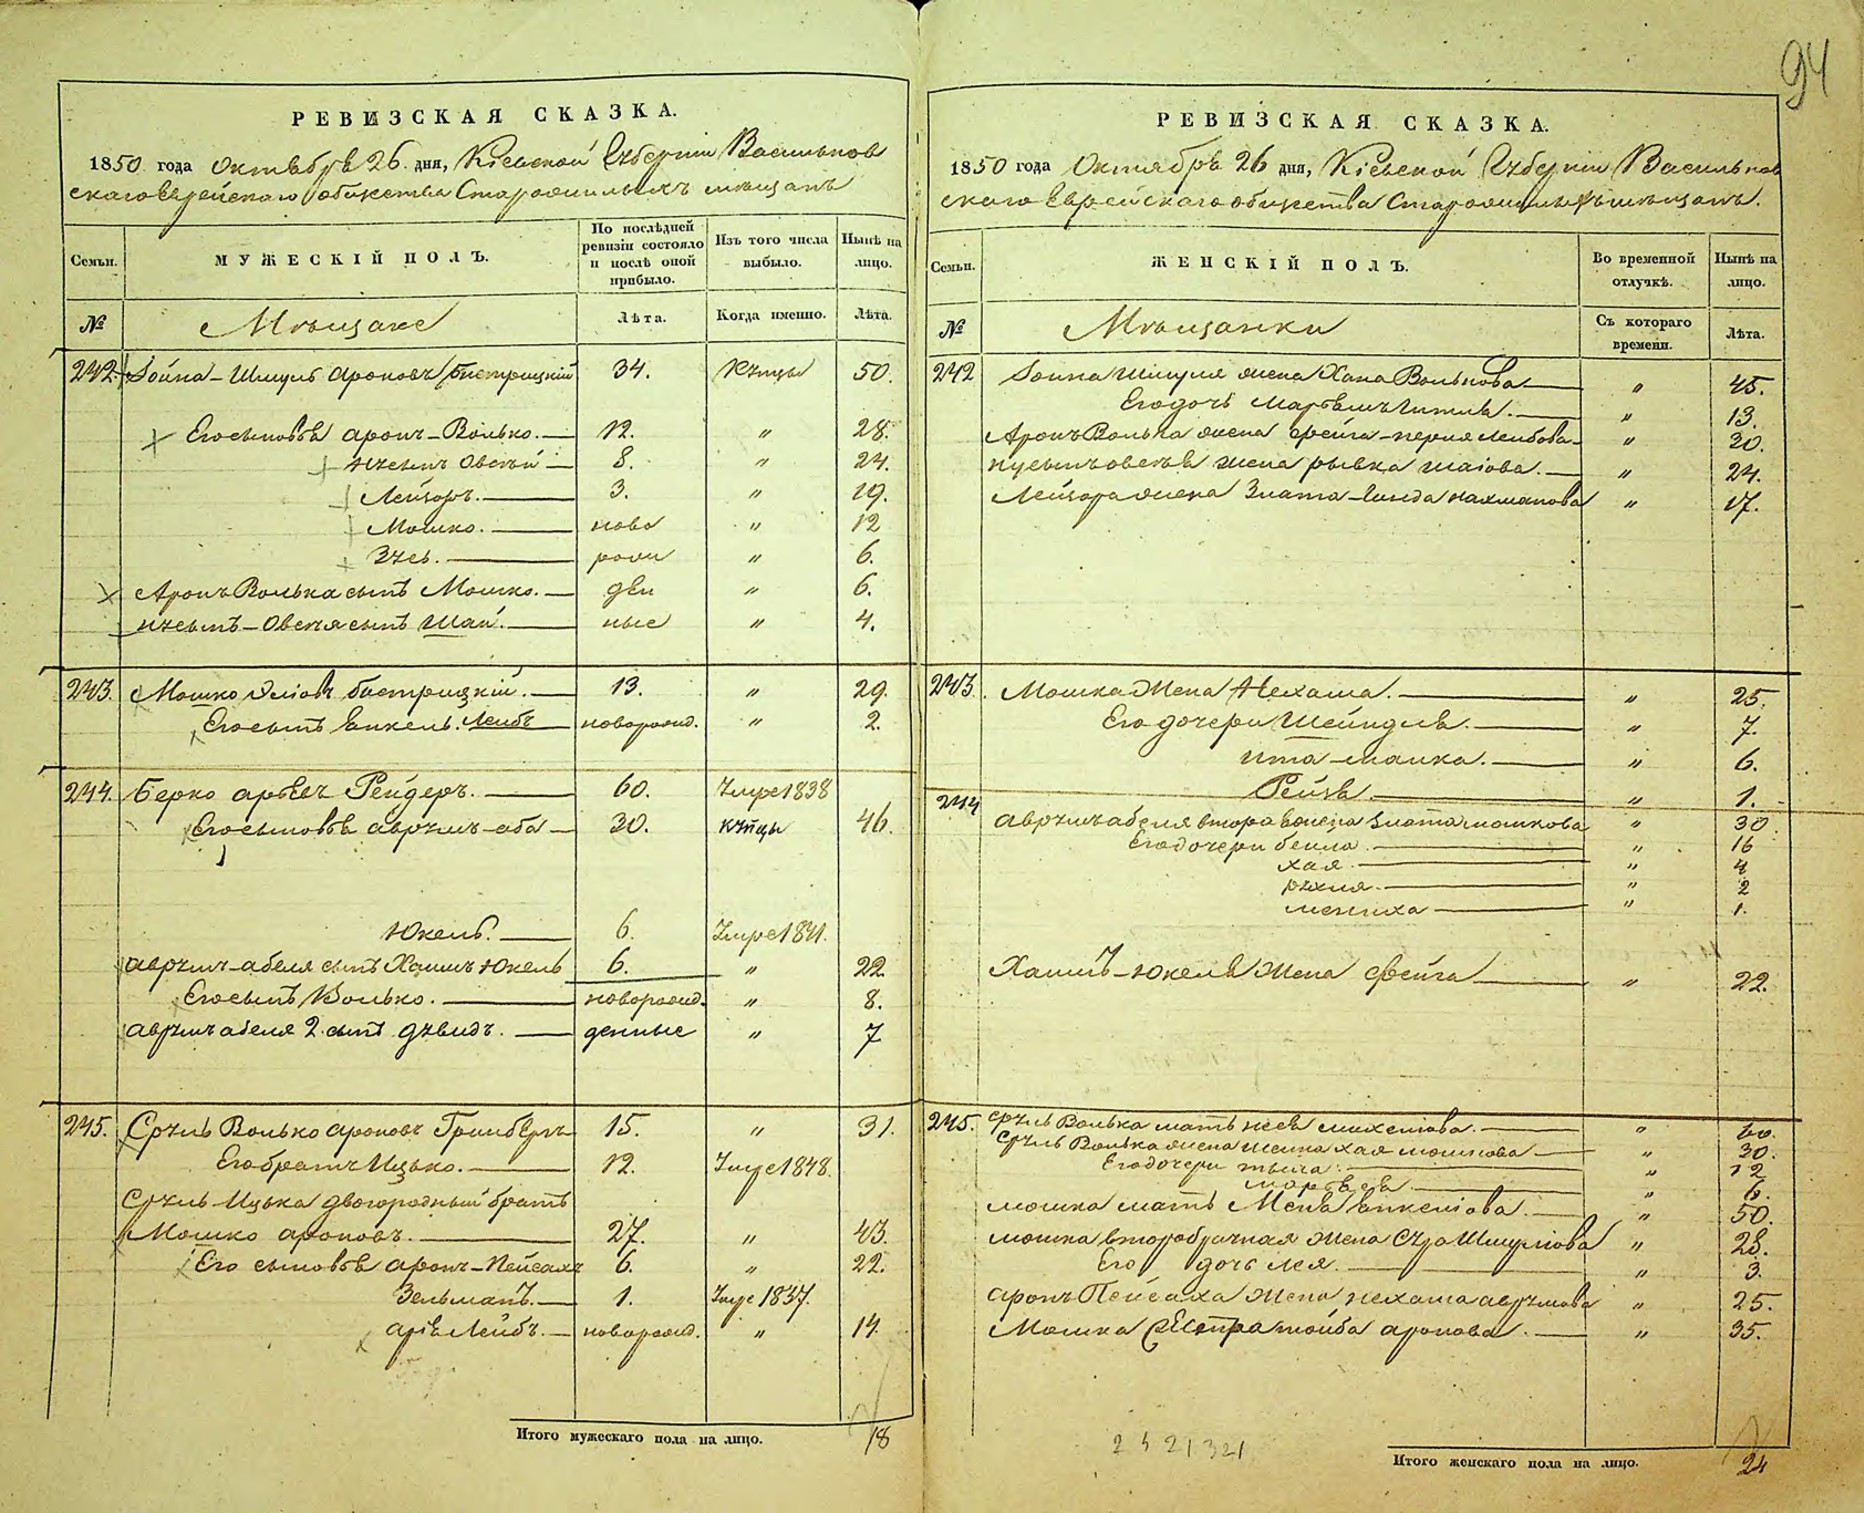 94
РЕВИЗСКАЯ СКАЗКА.
1850 года Октября 26 дня, Кіевской Губерніи Васильков
скаго Еврейскаго общества Старожилыхъ мѣщанъ
Семьи. МУЖЕСКІЙ ПОЛЪ. По послѣдней ревизіи состояло и послѣ оной прибыло. Изъ того числа выбыло. Нынѣ на лицо.
№ Мѣщане Лѣта. Когда именно. Лѣта.
242. Іойна-Шмуль Ароновъ 34. купцы 50.
Его сыновья Аронъ-Волько. 12. " 28.
Нусымъ Овсей 8. " 24.
Лейзоръ. 3. " 19.
Мошко. ново " 12
Зусь. рож " 6.
Аронъ Волька сынъ Мошко. ден " 6.
Нусымъ-Овсея сынъ Шаи. ные " 4.
243. Мошко Эліовъ Быстрицкій. 13. " 29.
Его сынъ Янкель. Лейбъ новорожд. " 2.
244. Берко Арьевъ Рейдеръ. 60. Умре 1838
Его сыновья Аврумъ-Аба 30. купцы 46.
Юкель. 6. Умре 1841.
Аврумъ-Абеля сынъ Хаимъ Юкель 6. " 22.
Его сынъ Волько. новорожд. " 8.
Аврумъ Абеля 2. сынъ Дувидъ. денные " 7
245. Сруль Волько Ароновъ Гринбергъ 15. " 31.
Его братъ Ицько. 12. Умре 1848.
Сруль-Ицька двоюродный братъ
Мошко Ароновъ. 27. " 43.
Его сыновья Аронъ-Пейсахъ 6. " 22.
Зельманъ. 1. Умре 1837.
Арія Лейбъ. новорожд. " 14
Итого мужескаго пола на лицо. 18
РЕВИЗСКАЯ СКАЗКА.
1850 года Октября 26 дня, Кіевской Губерніи Васильков
скаго Еврейскаго общества Старожилыхъ мѣщанъ.
Семьи. ЖЕНСКІЙ ПОЛЪ. Во временной отлучкѣ. Нынѣ на лицо.
№ Мѣщанки Съ котораго времени. Лѣта.
242 Іойна Шмуля жена Хана Волькова " 45.
Его дочь " 13.
Аронъ Волька жена Фейга-Перля Лейбова " 30.
Нусымъ Овсея жена Рывка Шаіова. " 24.
Лейзора жена Злата-Гинда Нахманова " 17.
243. Мошка Жена Нехама. " 25.
Его дочери Шейндля. " 7.
Ита-Малка. " 6.
Рейзя. " 1.
244 Аврумъ Абеля втора жена Злата Мошкова " 30.
Его дочери Бейла. " 16
Хая. " 4
Рухля. " 2
Мениха " 1.
Хаимъ-Юкеля Жена Фейга " 22.
245. Сруль Волька мать Нейя " 60.
Сруль Волька жена Хая Мошкова " 30.
Его дочери " 12
" 6.
Мошка мать Меня Янкеліова. " 50.
Мошка второбрачная Жена Сура Шмуліова " 28.
Его дочь Лея. " 3.
Аронъ Пейсаха Жена Нехама Аврумова " 25.
Мошка Сестра Тойба Аронова. " 35.
2 5 2 1 3 2 1
Итого женскаго пола на лицо. 24